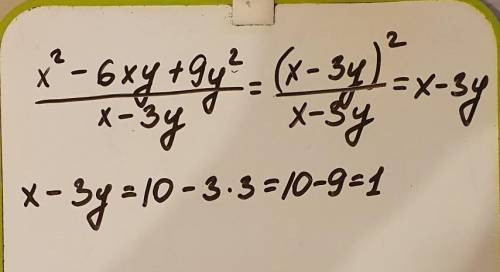 x² - 6xy + 9y² / x - 3y = (x - 3y)² / x - 3y = x - 3y
x - 3y = 10 - 3·3 = 10 - 9 = 1